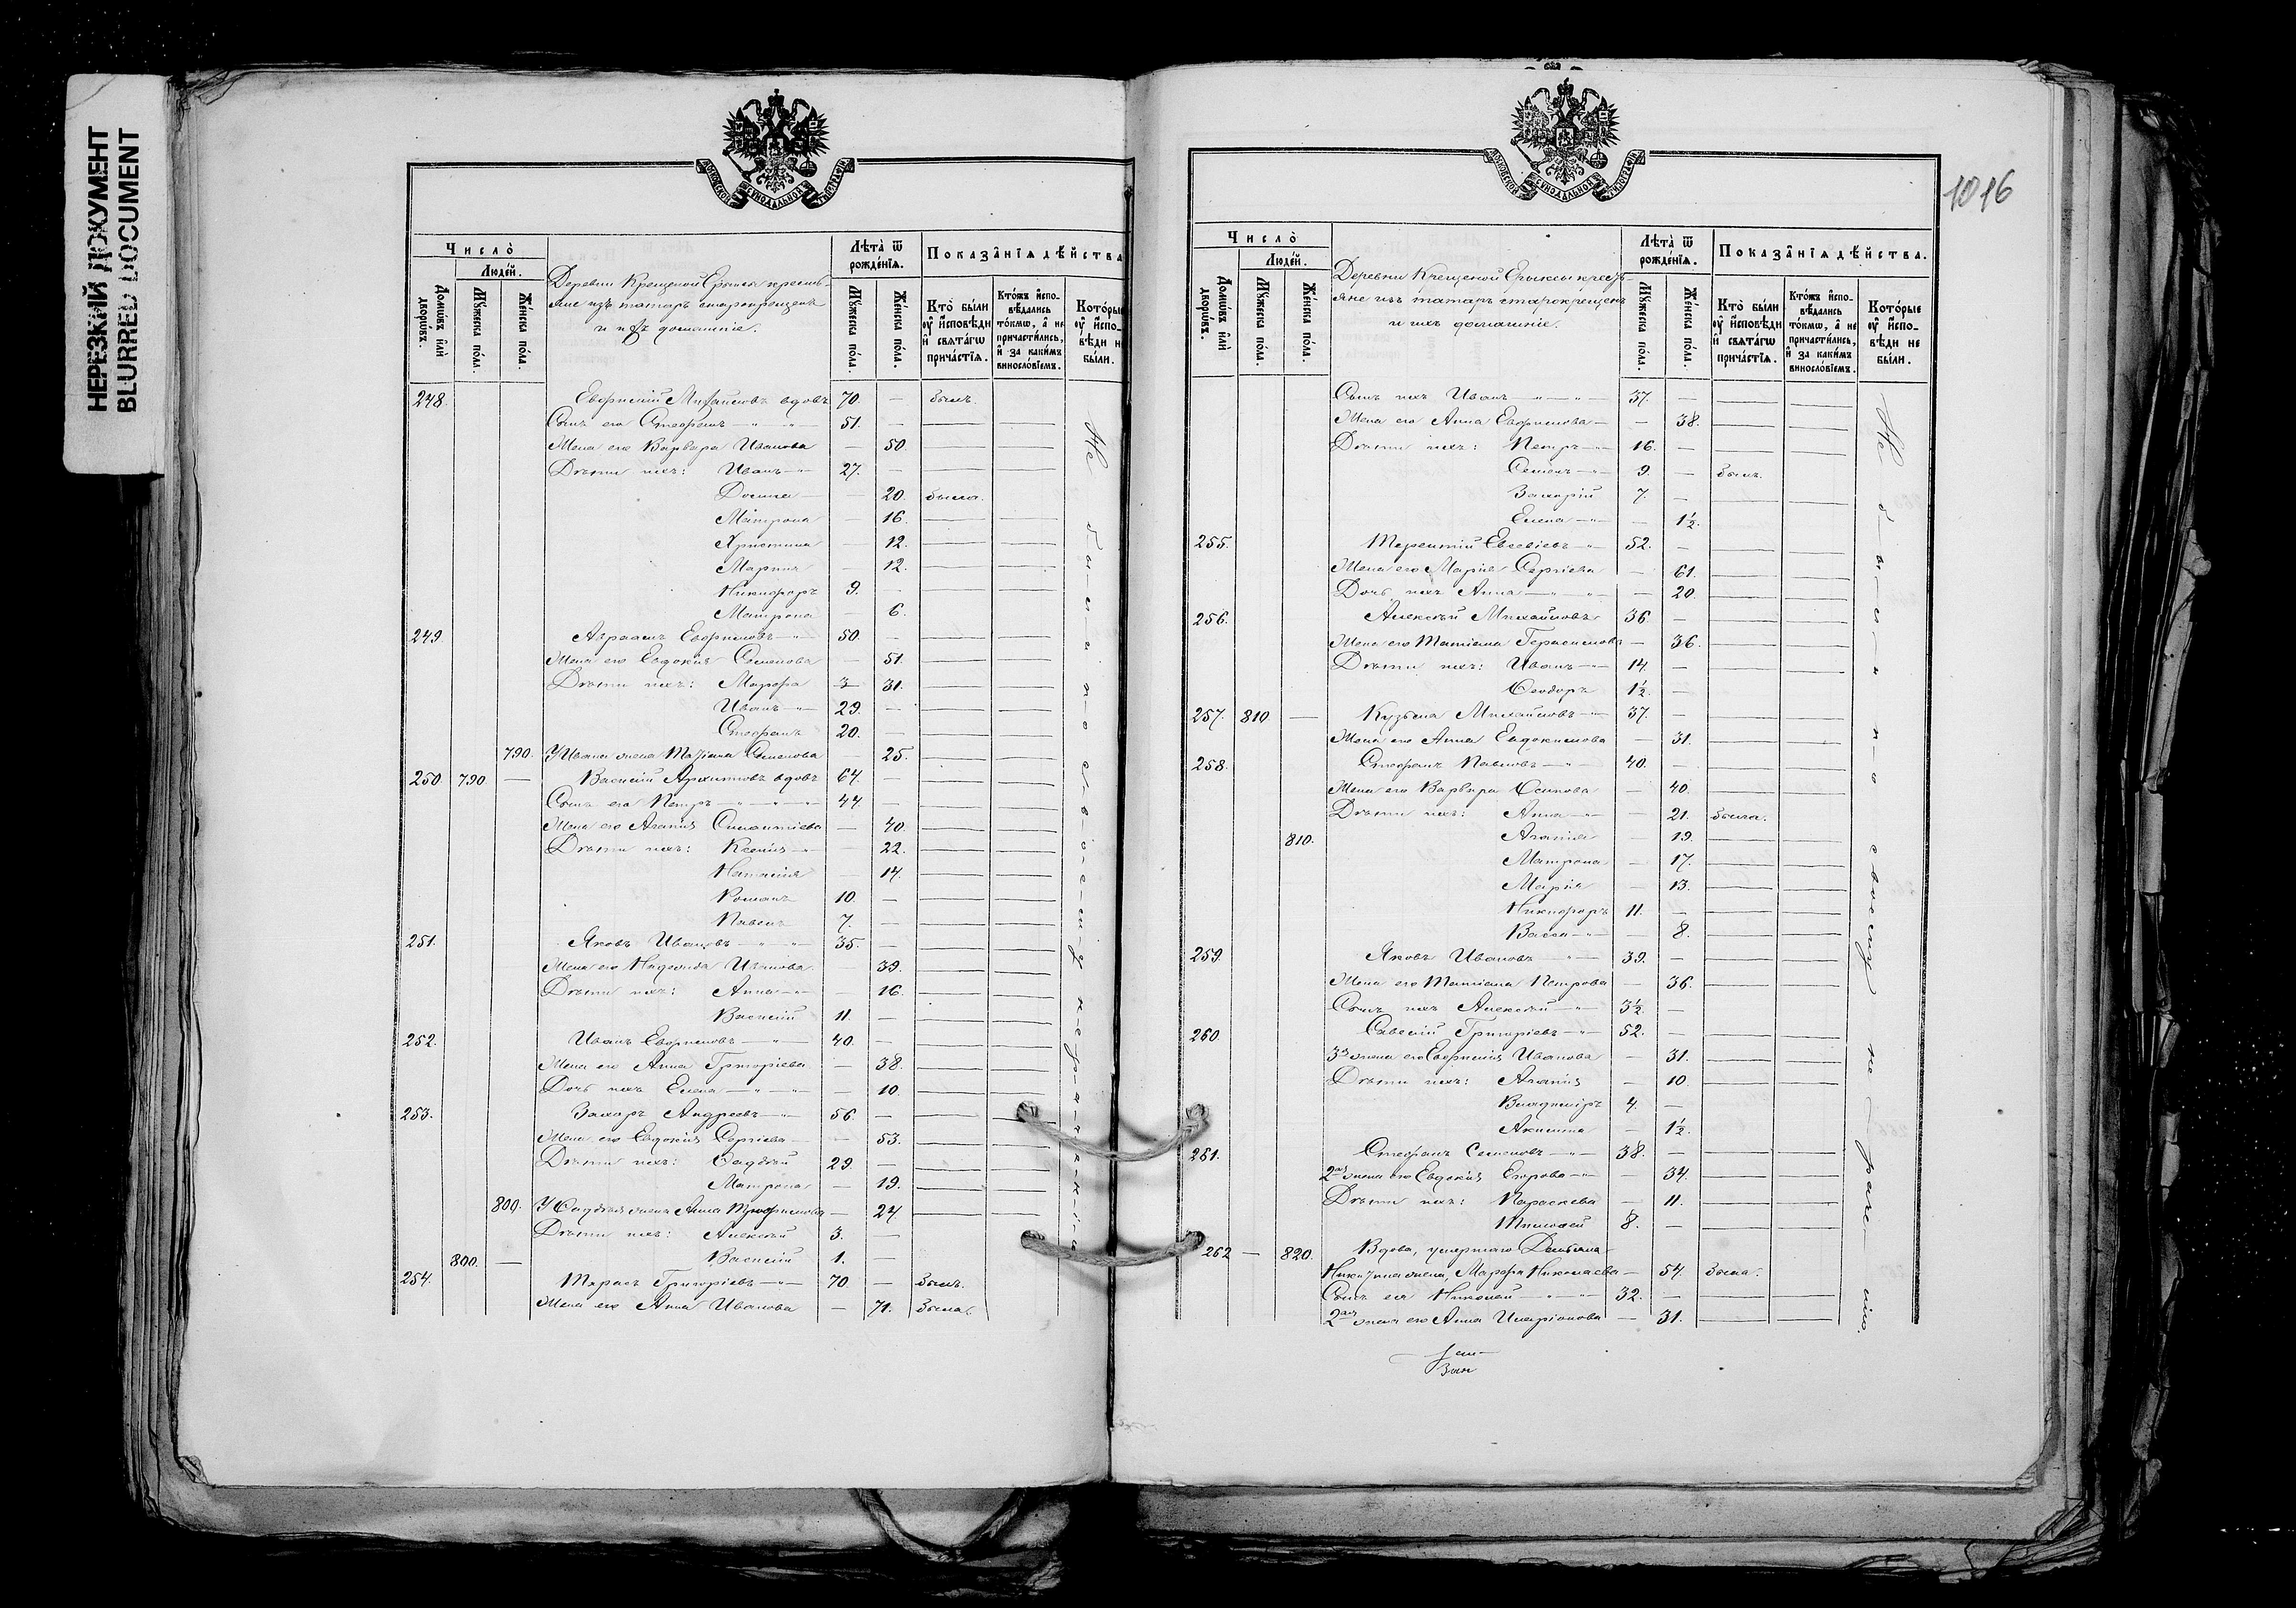 НЕРЕЗКИЙ ДОКУМЕНТ
BLURRED DOCUMENT
МОСКОВСКОЙ СУНОДАЛЬНОЙ ТИПОГРАФІИ
Число̀
Людей.
Домѡвъ или дворѡвъ.
Мꙋжеска пола.
Женска пола.
Деревни Крещеной Ерыксы кресть-
яне изъ татаръ старокрещенъ
и ихъ домашніе.
Лѣта ѿ рожденїѧ.
Мꙋжеска пола.
Женска пола.
Показанїѧ дѣйства
Кто были оу исповѣди и свѧтагѡ причастїѧ.
Ктожъ исповѣдались токмѡ, а не причастились, и за какимъ винословїемъ.
Которые оу исповѣди не были.
248. Евфимій Михайловъ вдовъ 70. — былъ.
Сынъ его Стефанъ 51. —
Жена его Варвара Иванова — 50.
Дѣти ихъ: Иванъ 27. —
— 20. была.
Матрона — 16.
Христина — 12.
Марина — 12.
Никифоръ 9. —
Матрона — 6.
249. Евфимовъ 50. —
Жена его Евдокія Семенова — 51.
Дѣти ихъ: Марфа 3 31.
Иванъ 29. —
Стефанъ 20. —
790. У Ивана жена Татіана Семенова 25.
250. 790 — Василій Архиповъ вдовъ 64. —
Сынъ его Петръ 44 —
Жена его Агапія — 40.
Дѣти ихъ: Ксенія — 22.
Наталія — 14.
Романъ 10. —
Павелъ 7. —
251. Яковъ Ивановъ 35. —
Жена его Надежда Иванова — 39.
Дѣти ихъ: Анна — 16.
Василій 11. —
252. Иванъ Евфимовъ 40. —
Жена его Анна Григоріева — 38.
Дочь ихъ Елена — 10.
253. Захаръ Андреевъ 56 —
Жена его Евдокія Сергіева — 53.
Дѣти ихъ: Фаддѣй 29. —
Матрона — 19.
800. У Фаддѣя жена Анна — 24
Дѣти ихъ: Алексѣй 3. —
800. — Василій 1.
254. Тарасъ Григоріевъ 70 — былъ.
Жена его Анна Иванова — 71. была.
Не были по
1016
МОСКОВСКОЙ СУНОДАЛЬНОЙ ТИПОГРАФІИ
Число̀
Людей.
Домѡвъ или дворѡвъ.
Мꙋжеска пола.
Женска пола.
Деревни Крещеной Ерыксы кресть-
яне изъ татаръ старокрещенъ
и ихъ домашніе.
Лѣта ѿ рожденїѧ.
Мꙋжеска пола.
Женска пола.
Показанїѧ дѣйства.
Кто были оу исповѣди и свѧтагѡ причастїѧ.
Ктожъ исповѣдались токмѡ, а не причастились, и за какимъ винословїемъ.
Которые оу исповѣди не были.
Сынъ ихъ Иванъ 37. —
Жена его Анна Евфимова — 38.
Дѣти ихъ: Петръ 16. —
Семенъ 9. — былъ.
Захарій 7. —
Елена — 1½.
255. Терентій Евсевіевъ 52. —
Жена его Марія Сергіева — 61.
Дочь ихъ Анна — 20.
256. Алексѣй Михайловъ 36. —
Жена его Татіана Герасимова — 36.
Дѣти ихъ: Иванъ 14. —
Ѳеодоръ 1½. —
257. 810 — Кузьма Михайловъ 37. —
Жена его Анна Евдокимова — 31.
258. Стефанъ Павловъ 40. —
Жена его Варвара Осипова — 40.
Дѣти ихъ: Анна — 21. была.
810. Агапія — 19.
Матрона — 17.
Марія — 13.
Никифоръ 11. —
Васса — 8.
259. Яковъ Ивановъ 39. —
Жена его Татіана Петрова — 36.
Сынъ ихъ Алексѣй 3½ —
260. Савелій Григоріевъ 52. —
3я жена его Евфимія Иванова — 31.
Дѣти ихъ: Агапія — 10
Владиміръ 4. —
Акилина — 1½.
261. Стефанъ Семеновъ 38. —
2ая жена его Евдокія Егорова — 34.
Дѣти ихъ: Параскева — 11.
Тимоѳей 8. —
262 — 820. Вдова, умершаго Демьяна
Никитина жена, Марфа Николаева — 54. была.
Сынъ ея Николай 32. —
2ая жена его Анна Иларіонова — 31.
Не были по своему не-раче-нію.